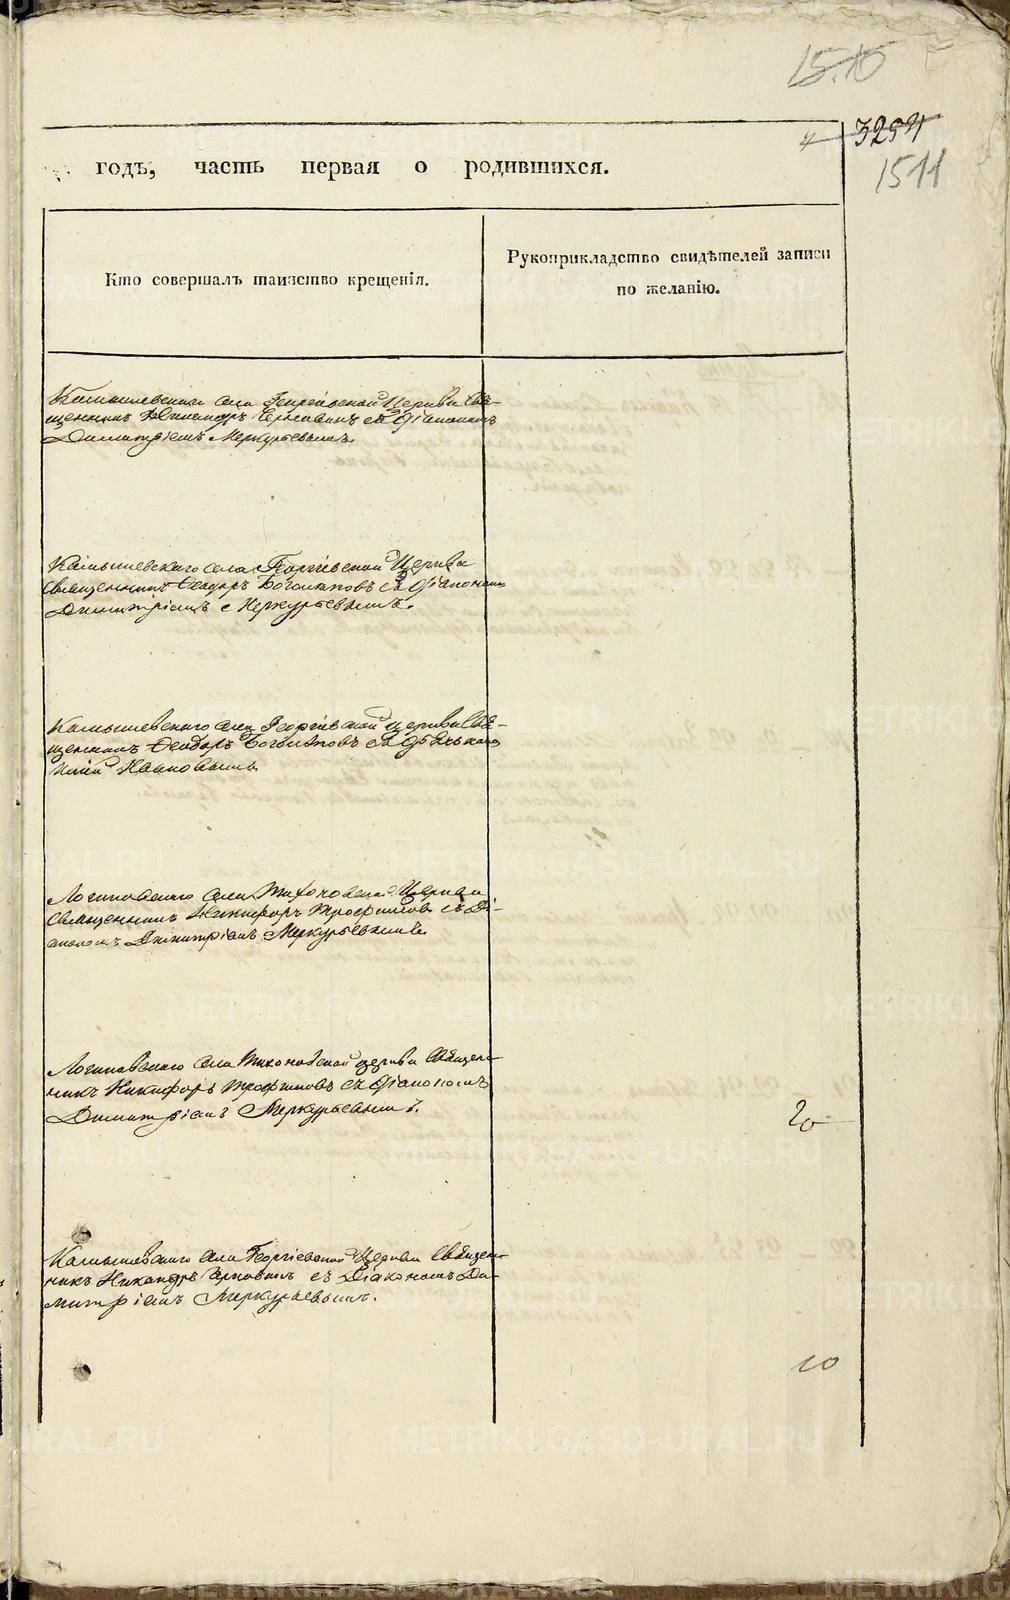 15.10
4 3254
1511
годъ, часть первая о родившихся.
Кто совершалъ таинство крещенія.
Рукоприкладство свидѣтелей записи
по желанію.
Камышевскаго села Георгіевской Церкви Свя-
щенникъ Никандръ съ Діакономъ
Димитріемъ Меркурьевымъ.
Камышевскаго села Георгіевской Церкви
Священникъ Ѳеодоръ Богомоловъ съ Діакономъ
Димитріемъ Меркурьевымъ.
Камышевскаго села Георгіевской Церкви Свя-
щенникъ Ѳеодоръ Богомоловъ съ
Логиновскаго села Тихоновской Церкви
Священникъ Никифоръ Трофимовъ съ Ді-
акономъ Димитріемъ Меркурьевымъ
Логиновскаго села Тихоновской церкви Священ-
никъ Никифоръ Трофимовъ съ Діакономъ
Димитріемъ Меркурьевымъ.
20
Камышевскаго села Георгіевской Церкви Священ-
никъ Никандръ съ Діакономъ Ди-
митріемъ Меркурьевымъ.
10
METRIKI.GASO-URAL.RU